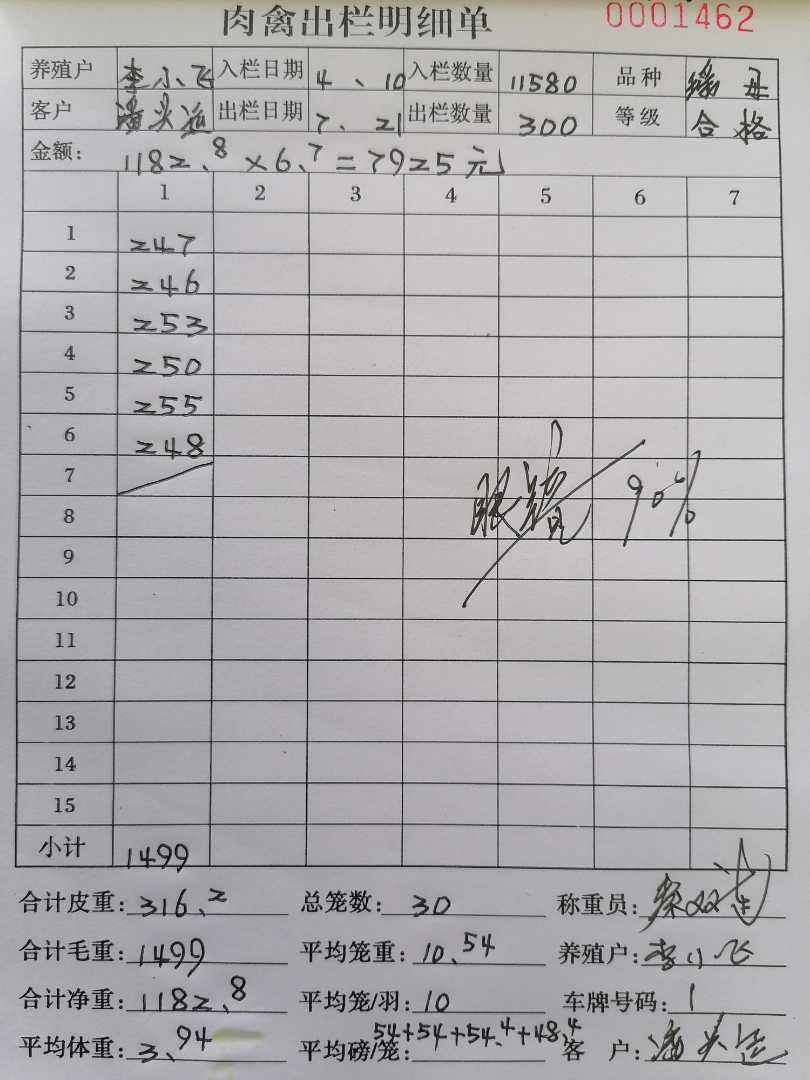 肉禽出栏明细单 0001462
养殖户 李小飞 入栏日期 4、10 入栏数量 11580 品种
客户 出栏日期 7、21 出栏数量 300 等级 合格
金额: 1182.8×6.7=7925元
1 2 3 4 5 6 7
1 247
2 246
3 253
4 250
5 255
6 248
7
8
9
10
11
12
13
14
15
90%
小计 1499
合计皮重: 316.2 总笼数: 30 称重员:
合计毛重: 1499 平均笼重: 10.54 养殖户: 李小飞
合计净重: 1182.8 平均笼/羽: 10 车牌号码: 1
平均体重: 3.94 平均磅/笼: 54+54+54.4+48.4 客 户: